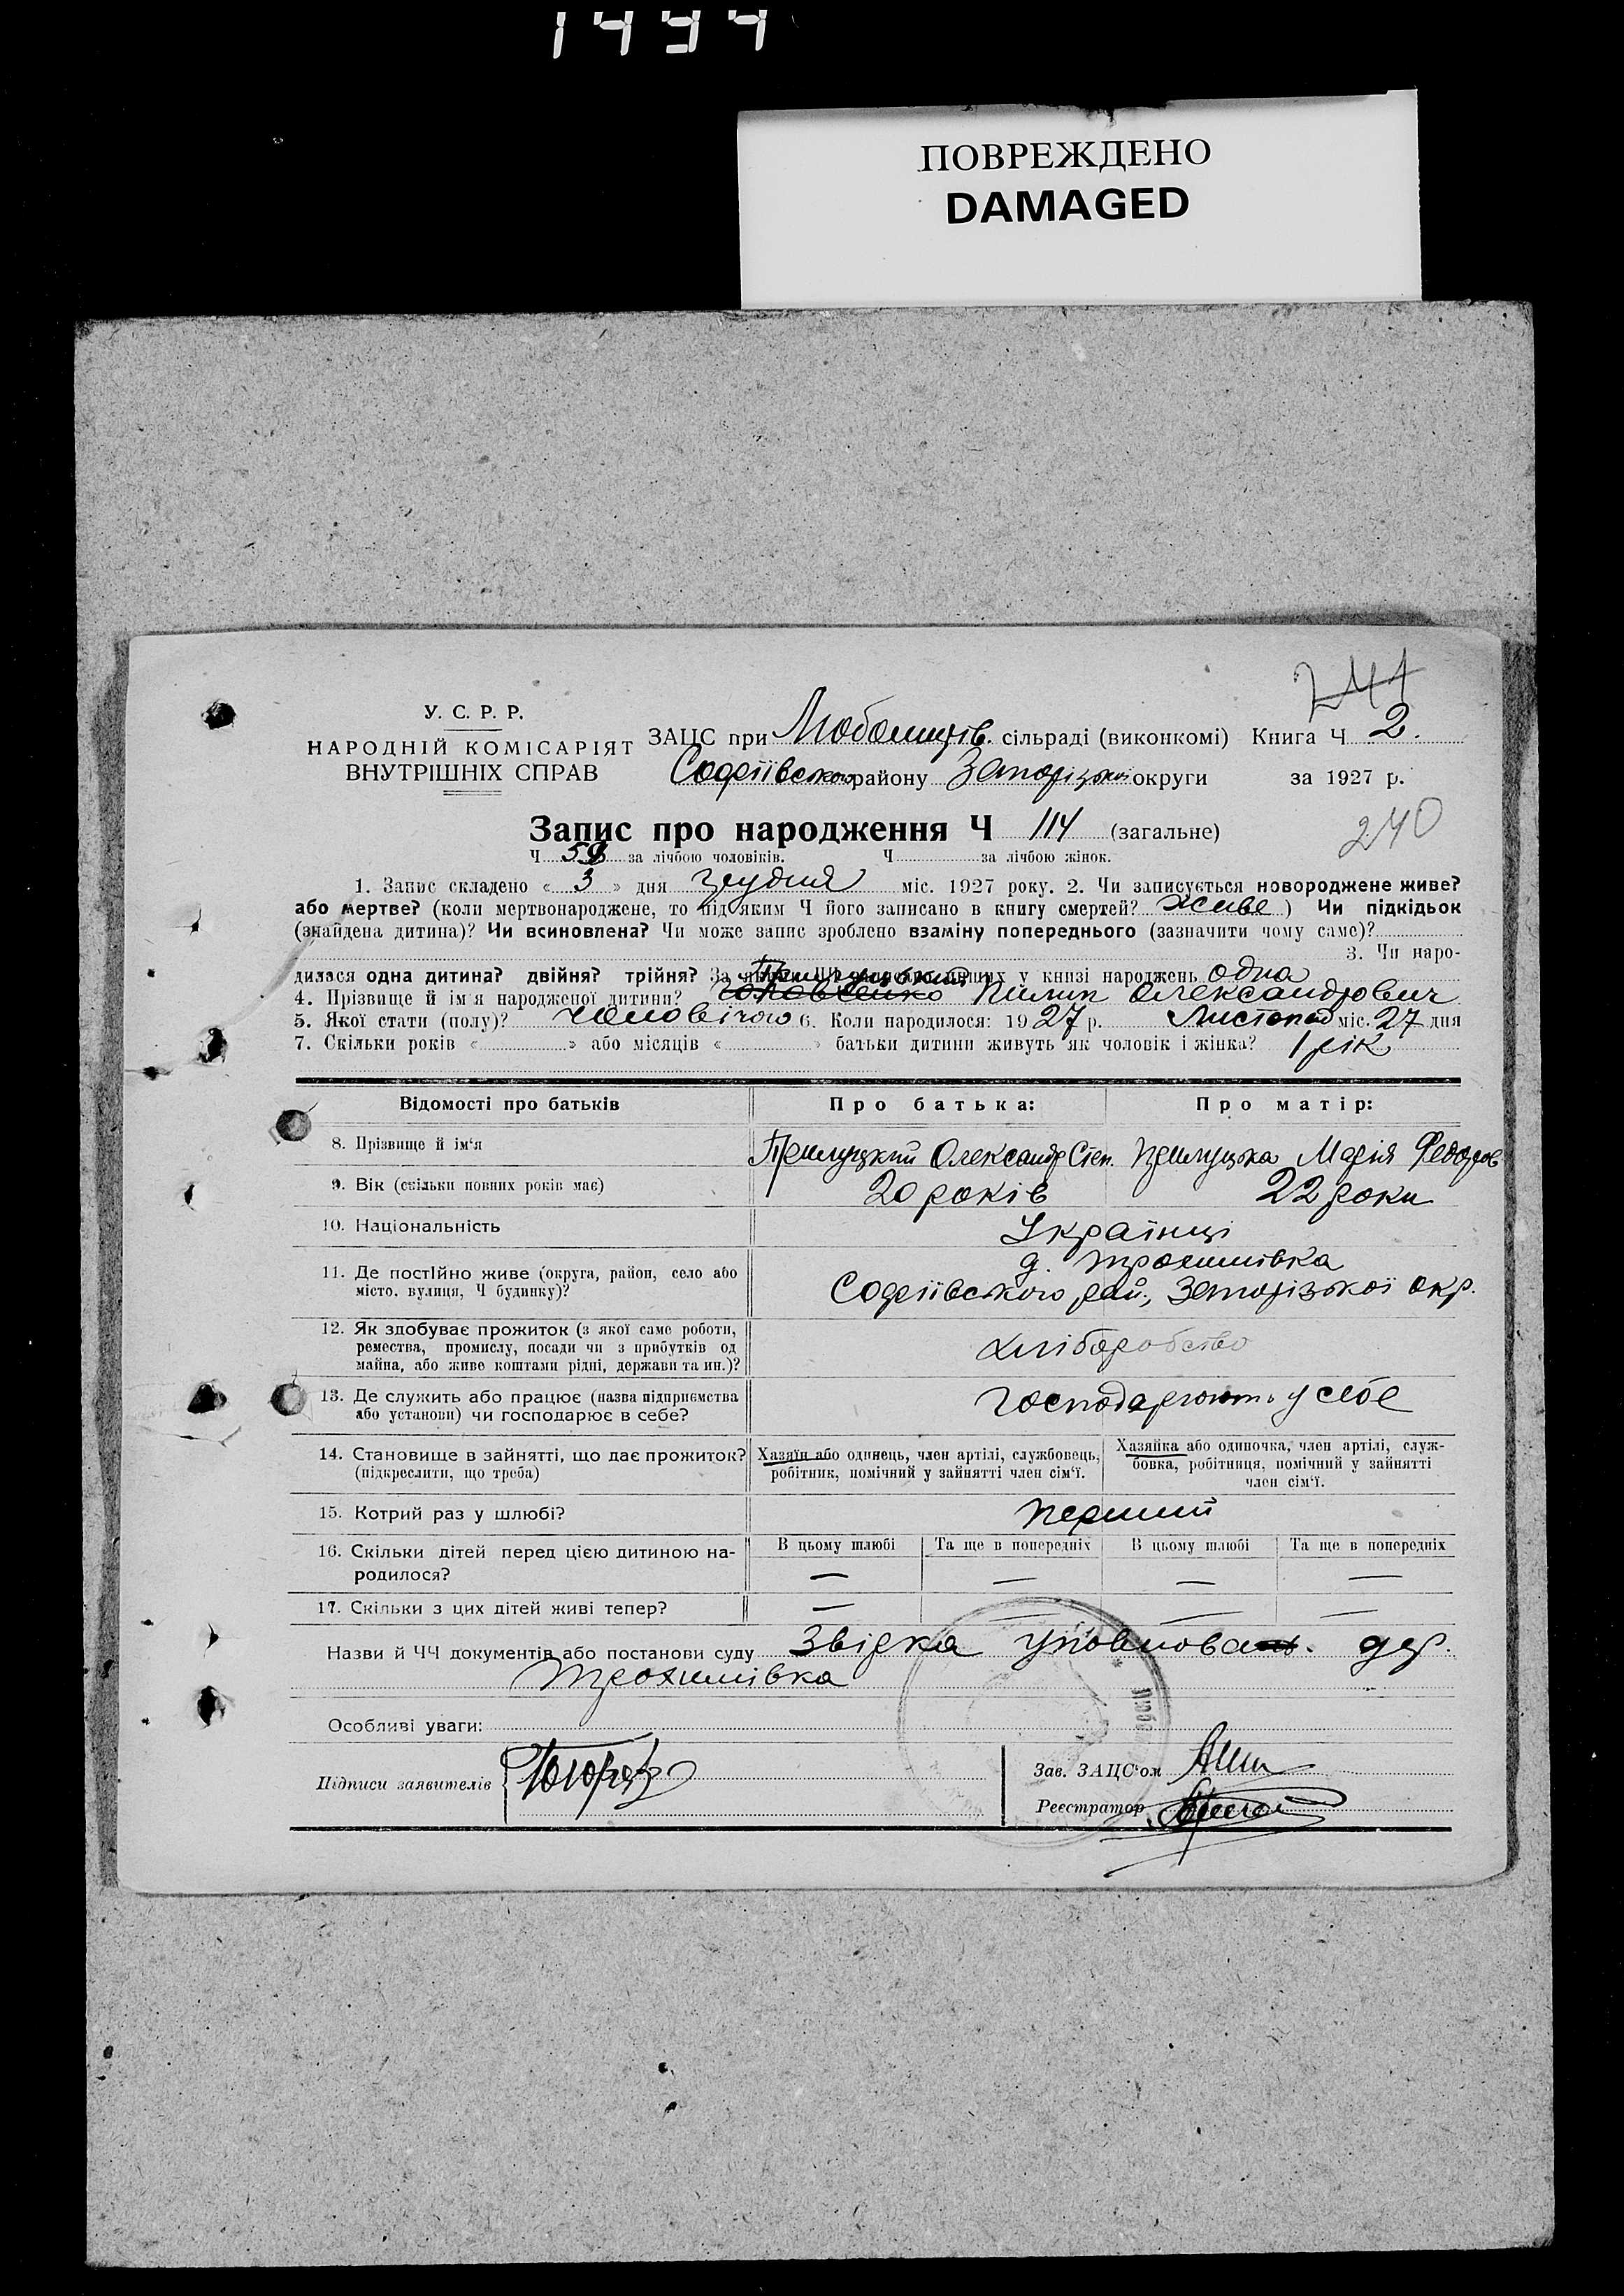 1494
ПОВРЕЖДЕНО
DAMAGED
241
У. С. Р. Р.
НАРОДНІЙ КОМІСАРІЯТ
ВНУТРІШНІХ СПРАВ
ЗАЦС при Любомирів. сільраді (виконкомі) Книга Ч 2.
Софіївського району Запорізької округи за 1927 р.
Запис про народження Ч 114 (загальне)
240
Ч 59 за лічбою чоловіків. Ч за лічбою жінок.
1. Запис складено « 3 » дня грудня міс. 1927 року. 2. Чи записується новороджене живе?
або мертве? (коли мертвонароджене, то під яким Ч його записано в книгу смертей? живе ) Чи підкідьок
(знайдена дитина)? Чи всиновлена? Чи може запис зроблено взаміну попереднього (зазначити чому саме)?
3. Чи наро-
дилася одна дитина? двійня? трійня? За якими ЧЧ записано інших у книзі народжень одна
Прилуцький
4. Прізвище й ім'я народженої дитини? Пилип Олександрович
5. Якої стати (полу)? чоловічої 6. Коли народилося: 1927 р. Листопад міс. 27 дня
7. Скільки років « » або місяців « » батьки дитини живуть як чоловік і жінка? 1 рік
Відомості про батьків Про батька: Про матір:
8. Прізвище й ім'я Прилуцкий Олександр Степ. Прилуцька Марія Федоров
9. Вік (скільки повних років має) 20 років 22 роки
10. Національність Українці
11. Де постійно живе (округа, район, село або місто, вулиця, Ч будинку)? д. Трохимівка
Софіївського рай., Запорізької окр.
12. Як здобуває прожиток (з якої саме роботи,
ремества, промислу, посади чи з прибутків од
майна, або живе коштами рідні, держави та ин.)? хліборобство
13. Де служить або працює (назва підприємства
або установи) чи господарює в себе? господарюють у себе
14. Становище в зайнятті, що дає прожиток?
(підкреслити, що треба)
Хазяїн або одинець, член артілі, службовець,
робітник, помічний у зайнятті член сім'ї.
Хазяйка або одиночка, член артілі, служ-
бовка, робітниця, помічний у зайнятті
член сім'ї.
15. Котрий раз у шлюбі? перший
16. Скільки дітей перед цією дитиною на-
родилося?
В цьому шлюбі Та ще в попередніх В цьому шлюбі Та ще в попередніх
— — — —
17. Скільки з цих дітей живі тепер? — — — —
Назви й ЧЧ документів або постанови суду Звідка уповнова. дер.
Трохимівка
Особливі уваги:
Підписи заявителів
Зав. ЗАЦС'ом
Реєстратор